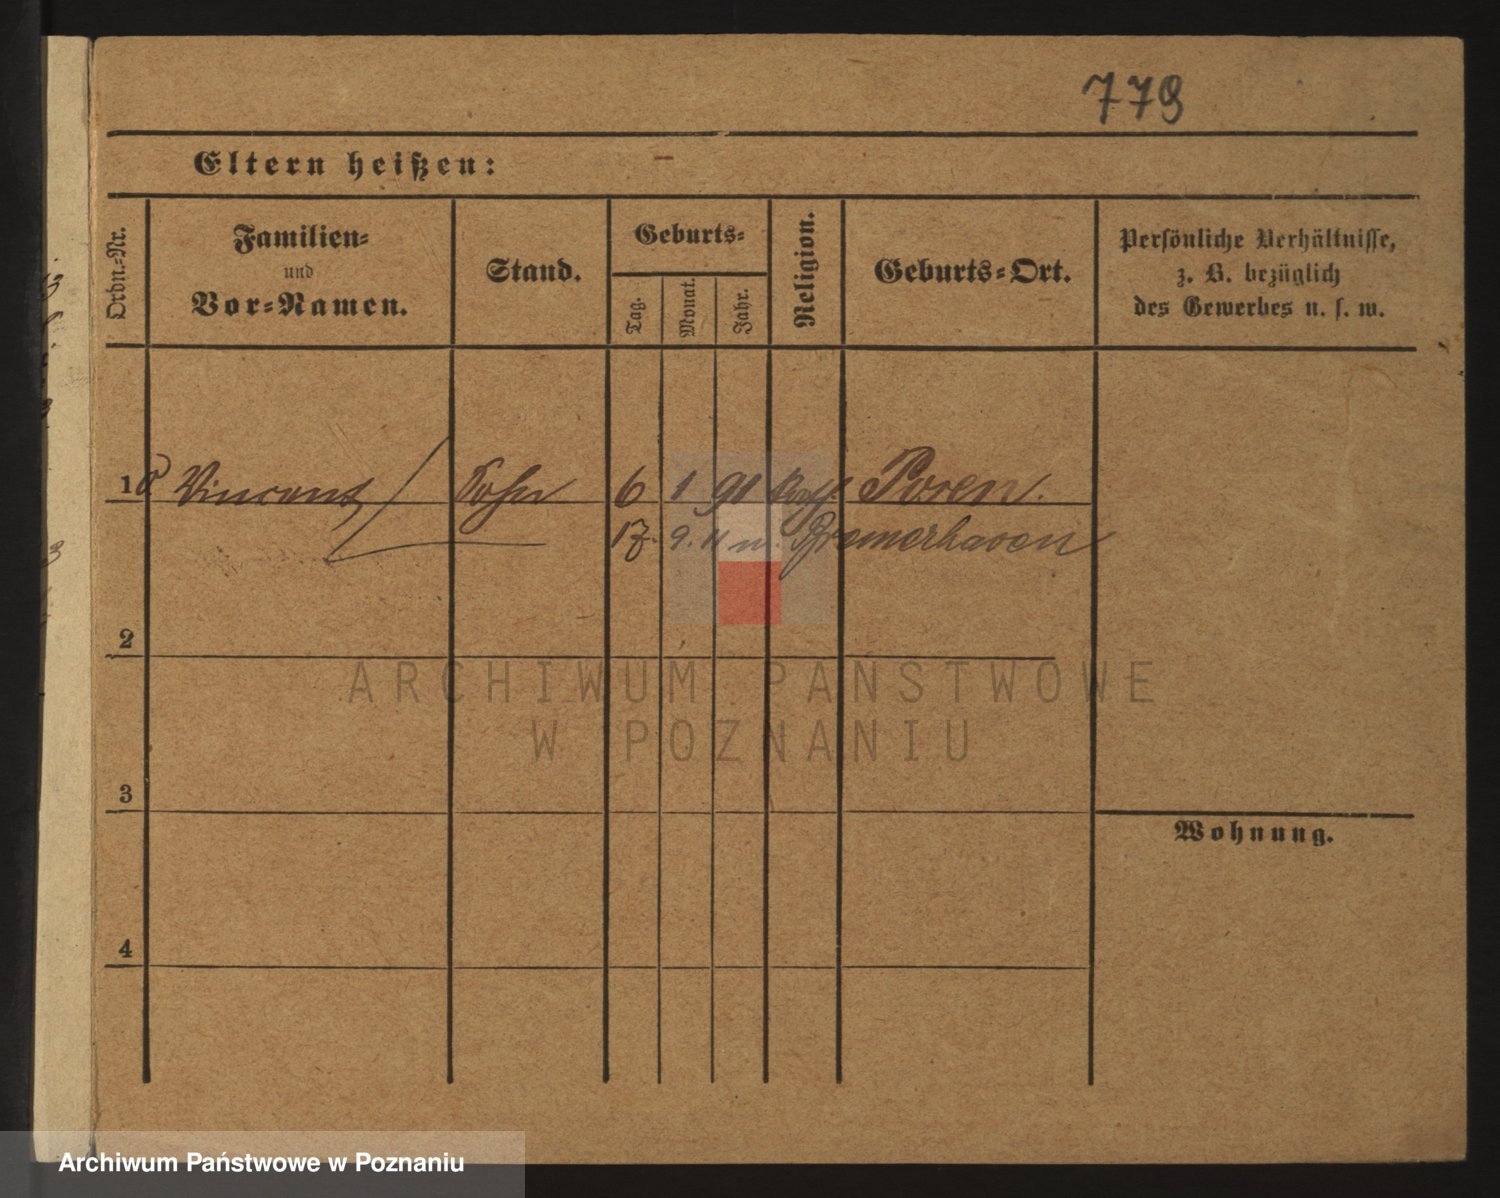 779
Eltern heißen: –
Ordn.-Nr.
Familien-
und
Vor-Namen.
Stand.
Geburts-
Tag.
Monat.
Jahr.
Religion.
Geburts-Ort.
Persönliche Verhältnisse,
z. B. bezüglich
des Gewerbes u. s. w.
1 Vincent Sohn 6 1 91 kath. Posen.
17. 9. 11 n. Bremerhaven
2
ARCHIWUM PAŃSTWOWE
W POZNANIU
3
Wohnung.
4
Archiwum Państwowe w Poznaniu